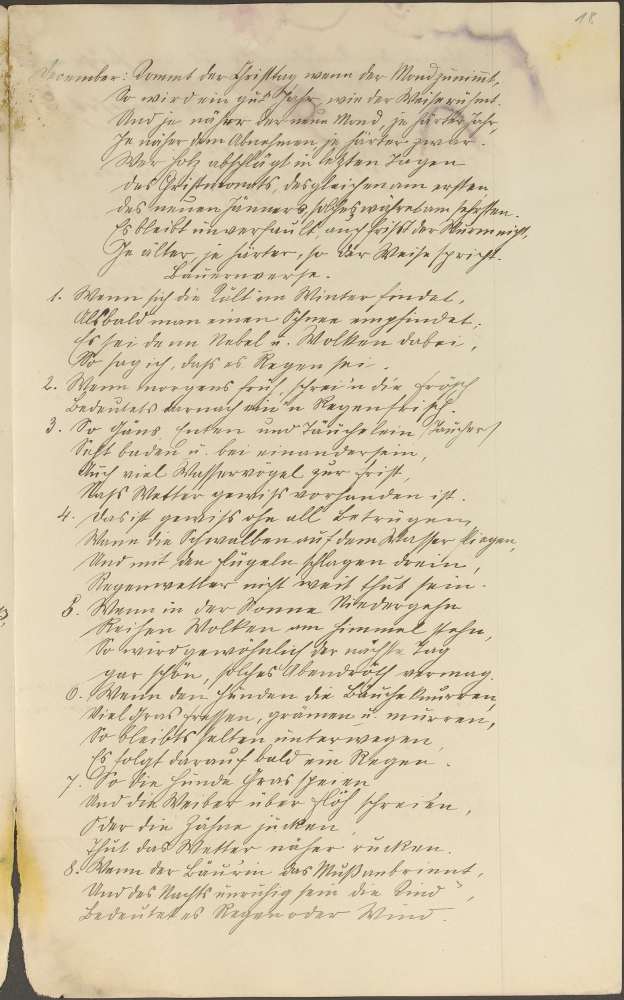 18
December: Kommt der Christtag wenn der Mond zunimmt,
So wird ein gut Jahr, wie der Weise rühmt.
Und je näher der neue Mond, je härter Jahr,
Je näher dem Abnehmen je härter zwar.
Wer Holz abschlägt in letzten Tagen
des Christmonats, desgleichen am ersten
des neuen Jänners, solches währet am
Es bleibt unverfault auch frißt der Wurm nicht,
Je älter, je härter, so der Weise spricht.
Bauernverse.
1. Wenn sich die Kält im Winter findet,
Alsbald man einen Schnee empfindet;
Es sei denn Nebel u. Wolken dabei,
So sag ich, daß es Regen sei.
2. Wenn morgens früh schrei'n die Frösch
Bedeutets darnach ein'n Regen frisch.
3. So Gäns Enten und Täuchelein (Taucher)
Seht baden u. bei einander sein,
Auch viel Wasservögel zur Frist,
Naß Wetter gewiß vorhanden ist.
4. Das ist gewiß ohn all Betrügen,
Wann die Schwalben auf dem Wasser fliegen,
Und mit den Flügeln schlagen drein,
Regenwetter nicht weit thut sein.
5. Wenn in der Sonne Niedergehn
Wolken am Himmel stehn,
So wird gewöhnlich der nächste Tag
gar schön, solches Abendröth vermag.
6. Wenn den Hunden die Bäuche knurren,
Viel Gras fressen, grämen u. murren,
So bleibts selten unterwegen,
Es folgt darauf bald ein Regen.
7. So die Hunde Gras speien
Und die Weiber über Flöh schreien,
Oder die Zähne jucken,
Thut das Wetter näher rucken.
8. Wenn der Bäurin das Muß anbrinnt,
Und des Nachts unruhig sein die Kind",
Bedeutet es Regen oder Wind.